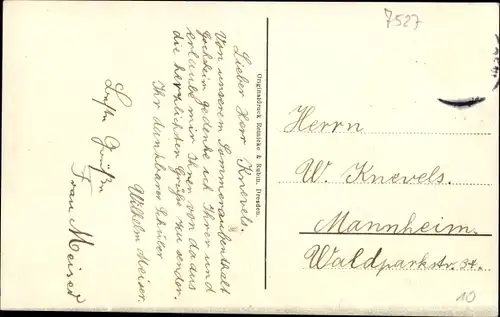 7527
Lieber Herr Knevels.
Von unserem Sommeraufenthalt
Hochheim gedenke ich Ihrer und
erlaube mir Ihnen von da aus
die herzlichsten Grüße zu senden.
Ihr dankbarer Schüler
Wilhelm Meiser.
Beste Grüßen
Frau Meiser
Originaldruck Reinicke & Rubin, Dresden.
Herrn
W. Knevels.
Mannheim.
Waldparkstr. 34.
10